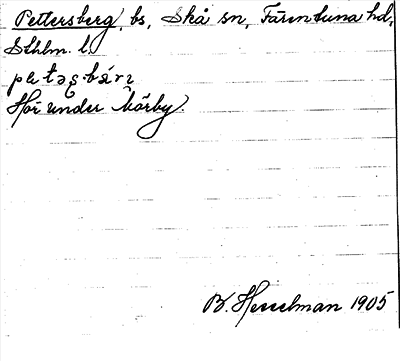 Pettersberg, bs, Skå sn, Färentuna hd,
Sthlm. l.
Hör under Mörby.
B. Hesselman 1905